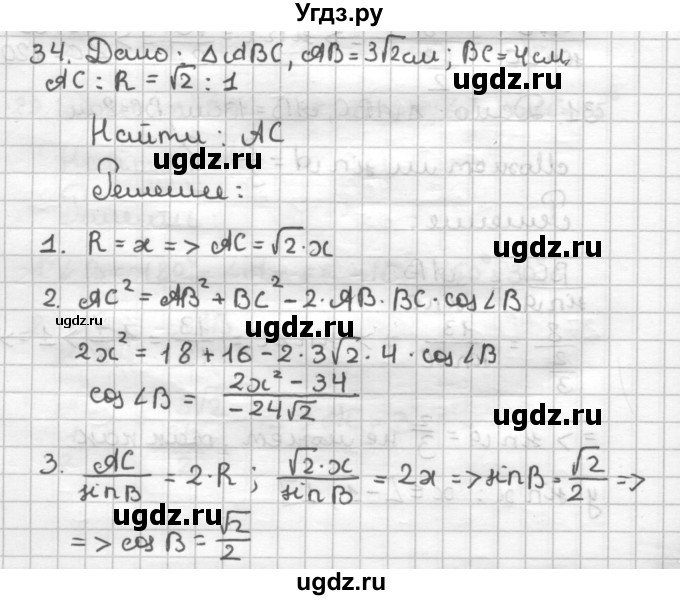 Угдз.ру
34. Дано: ΔABC, AB = 3√2 см; BC = 4 см,
AC : R = √2 : 1
Найти: AC
ugdz.ru
ugdz.ru
Решение:
1. R = x => AC = √2·x
ugdz.ru
2. AC² = AB² + BC² - 2·AB·BC·cos∠B
ugdz.ru
2x² = 18 + 16 - 2·3√2·4·cos∠B
cos∠B = (2x² - 34)/(-24√2)
ugdz.ru
3. AC/sinB = 2·R; √2·x/sinB = 2x => sinB = √2/2 =>
ugdz.ru
ugdz.ru
=> cosB = √2/2
ugdz.ru